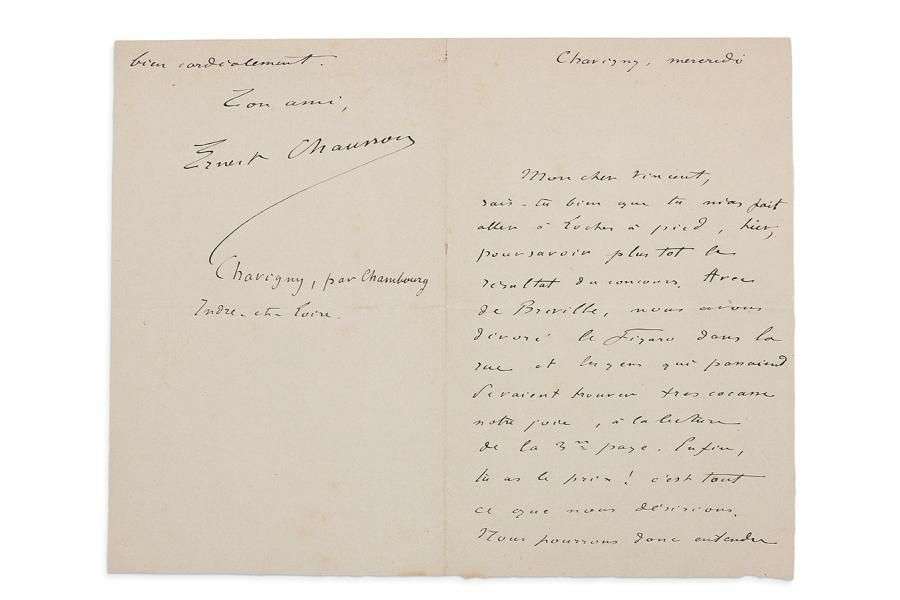 Chavigny, mercredi
Mon cher Vincent,
sais-tu bien que tu m'as fait
aller à Loches à pied, hier,
pour savoir plus tot le
résultat du concours. Avec
de Breville, nous avons
dévoré le Figaro dans la
rue et les gens qui passaient
devaient trouver tres cocasse
notre joie, à la lecture
de la 3me page. Enfin,
tu as le prix! c'est tout
ce que nous désirions.
Nous pourrons donc entendre
bien cordialement.
Ton ami,
Ernest Chausson
Chavigny, par Chambourg
Indre-et-Loire.